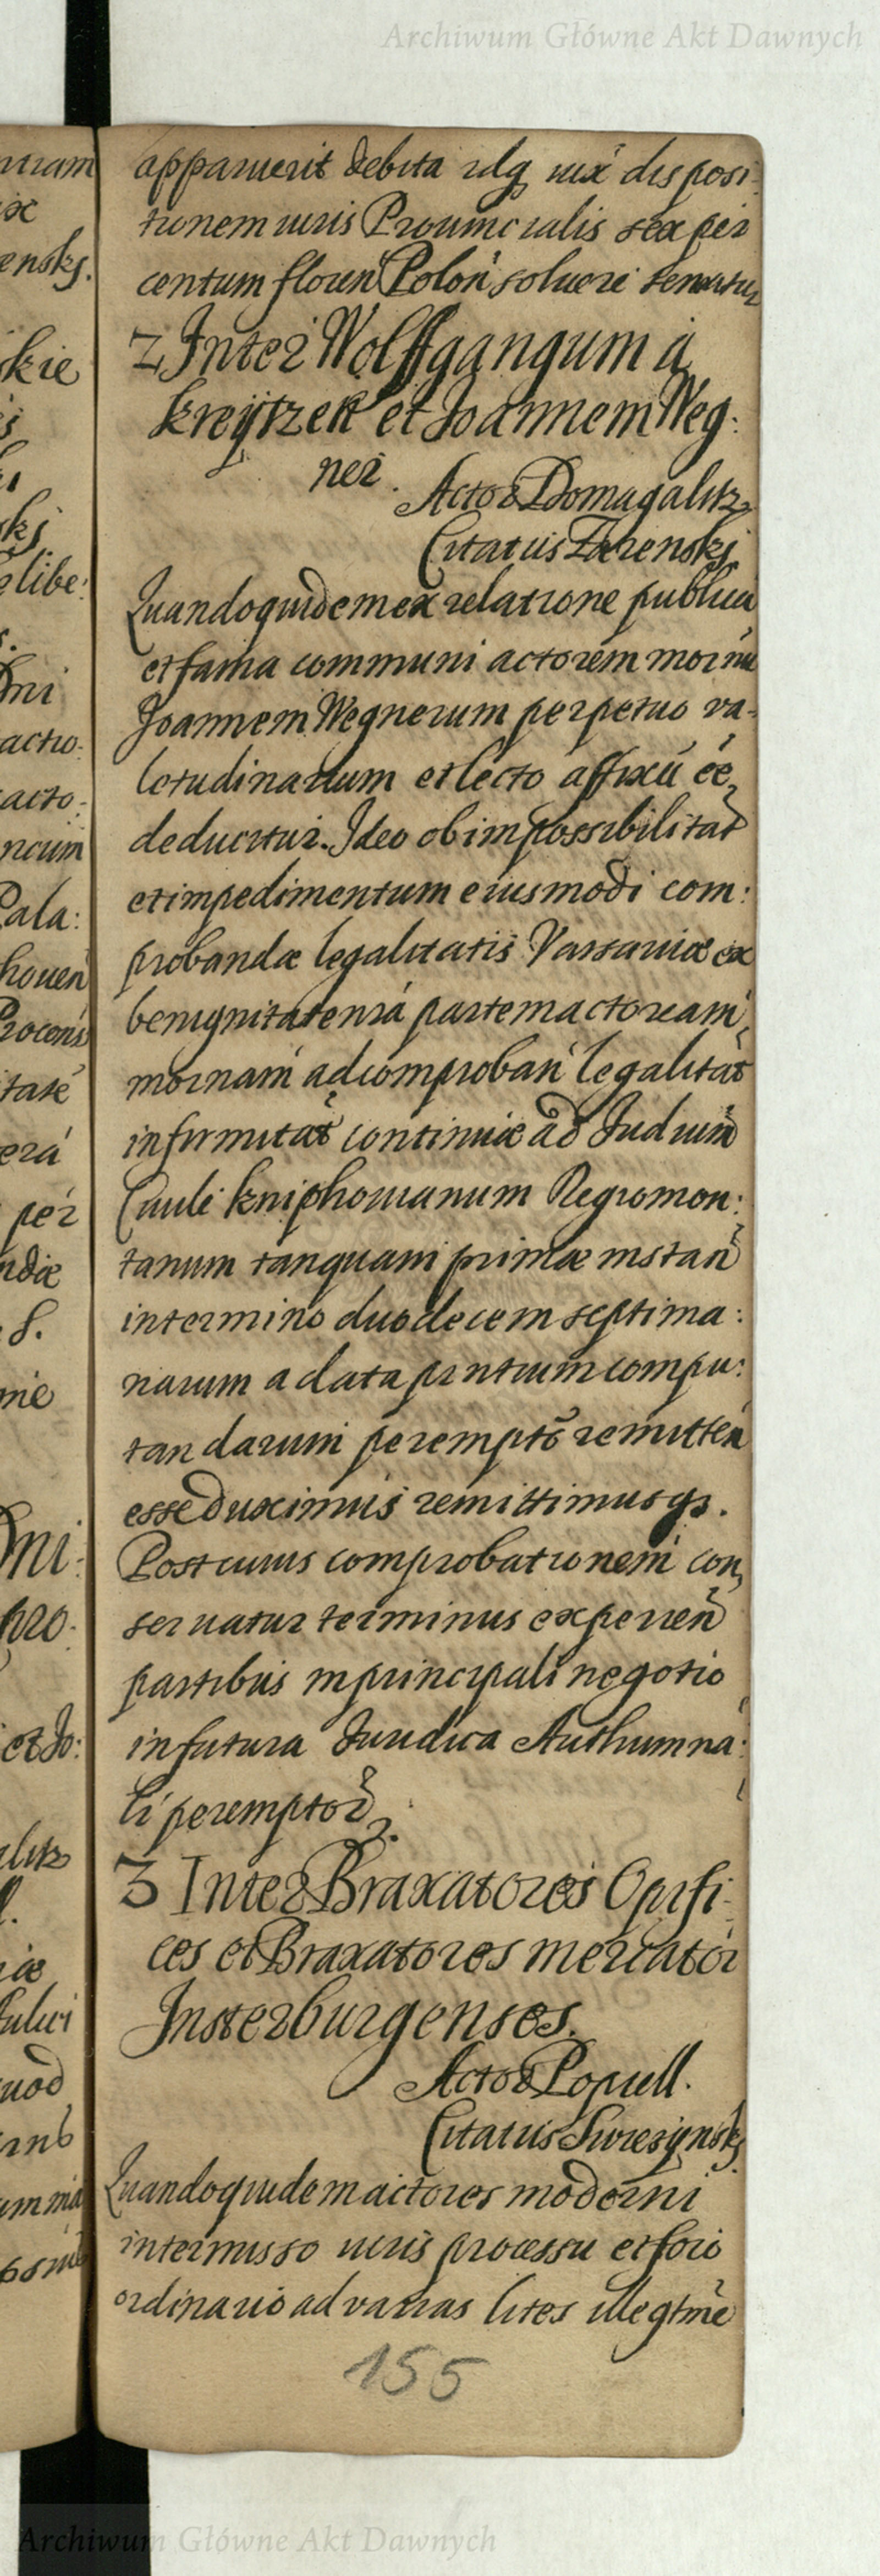 Archiwum Główne Akt Dawnych
apparuerit debita idq iux disposi:
tionem iuris Prouincialis sex per
centum floren Polon soluere teneatur
2 Inter Wolffgangum à
Kreÿtzen et Joannem Weg:
ner.
Actor Domagalitz
Citatus Zarenskj
Quandoquidem ex relatione publica
et fama communi actorem mornu
Joannem Wegnerum perpetuo va-
letudinarium et lecto affixu ee
deducitur. Ideo ob impossibilitat
et impedimentum eiusmodi com:
probandæ legalitatis Varsauiæ ex
benignitate nra partem actoream
mornam ad comproban legalitat
infirmitat continuæ ad Judicium
Caule kniphouianum Regiomon:
tanum tanquam primæ instan
in termino duodecem septima:
narum a data pntium compu:
tandarum perempto remitten
esse duximus remittimusqs.
Post cuius comprobationem con
seruatur terminus experien
partibus in principali negotio
in futura Juridica Authumna:
li peremptor.
3 Inter Braxatores Opifi-
ces et Braxatores mercator
Insterburgenses.
Actor Popiell.
Citatus Swiesÿnskj
Quandoquidem actores moderni
intermisso iuris processu et foro
ordinario ad varias lites illegtme
155
Archiwum Główne Akt Dawnych
nuam
ix
enskj.
skie
skj
elibe:
Dni
actio-
acto-
ncum
Pala:
houen
Procons
itate
erá
per
ndæ
8.
me
Dni:
pro-
et Jo:
alitz
iæ
uod